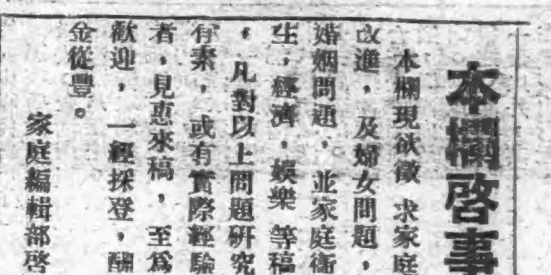 本欄啓事
本欄現欲徵 求家庭
改進，及婦女問題，
婚姻問題，並家庭衛
生，經濟，娛樂 等稿
，凡對以上問題研究
有素，或有實際經驗
者，見惠來稿，至爲
歡迎，一經採登，酬
金從豐。
家庭編輯部啓